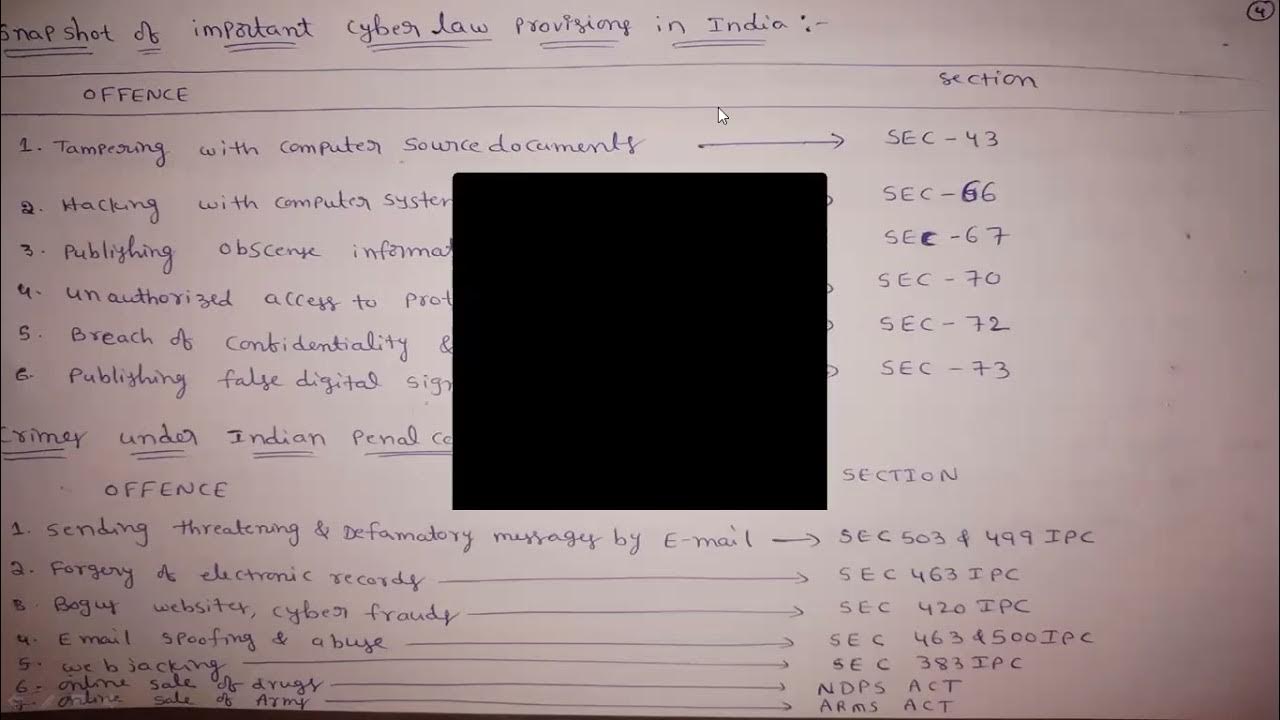 Snapshot of important Cyber law provisions in India :-
4
OFFENCE Section
1. Tampering with computer source documents → SEC - 43
2. Hacking with computer system SEC - 66
3. Publishing obscense informat SEC - 67
4. unauthorized access to prot SEC - 70
5. Breach of confidentiality & SEC - 72
6. Publishing false digital sign SEC - 73
Crimes under Indian Penal co
OFFENCE SECTION
1. Sending threatening & Defamatory messages by E-mail → SEC 503 & 499 IPC
2. Forgery of electronic records → SEC 463 IPC
3. Bogus websites, cyber frauds → SEC 420 IPC
4. Email spoofing & abuse → SEC 463 & 500 IPC
5. web jacking → SEC 383 IPC
6. online sale of drugs → NDPS ACT
7. online sale of Arms → ARMS ACT